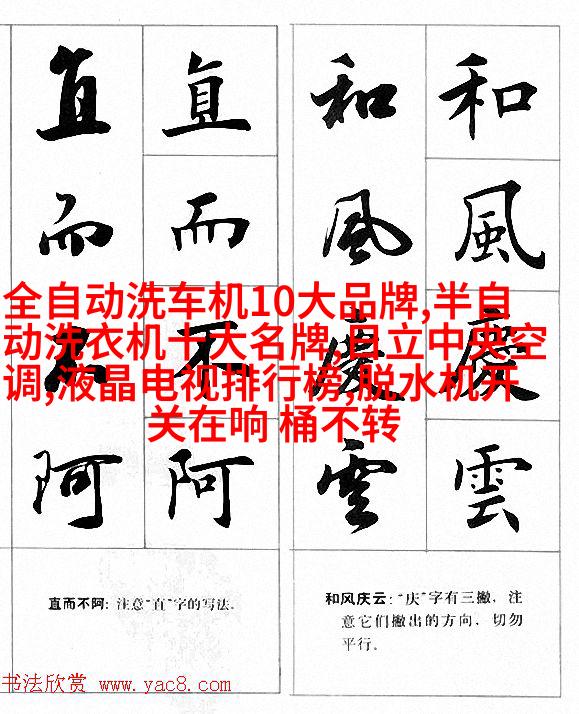 和風慶雲
和風慶雲
直而不阿
直而不阿
全自动洗车机10大品牌,半自
动洗衣机十大名牌,日立中央空
调,液晶电视排行榜,脱水机开
关在响 桶不转
和风庆云:“庆”字有三撇，注
意它们撇出的方向，切勿
平行。
直而不阿: 注意“直”字的写法.
书法欣赏 www.yac8.com